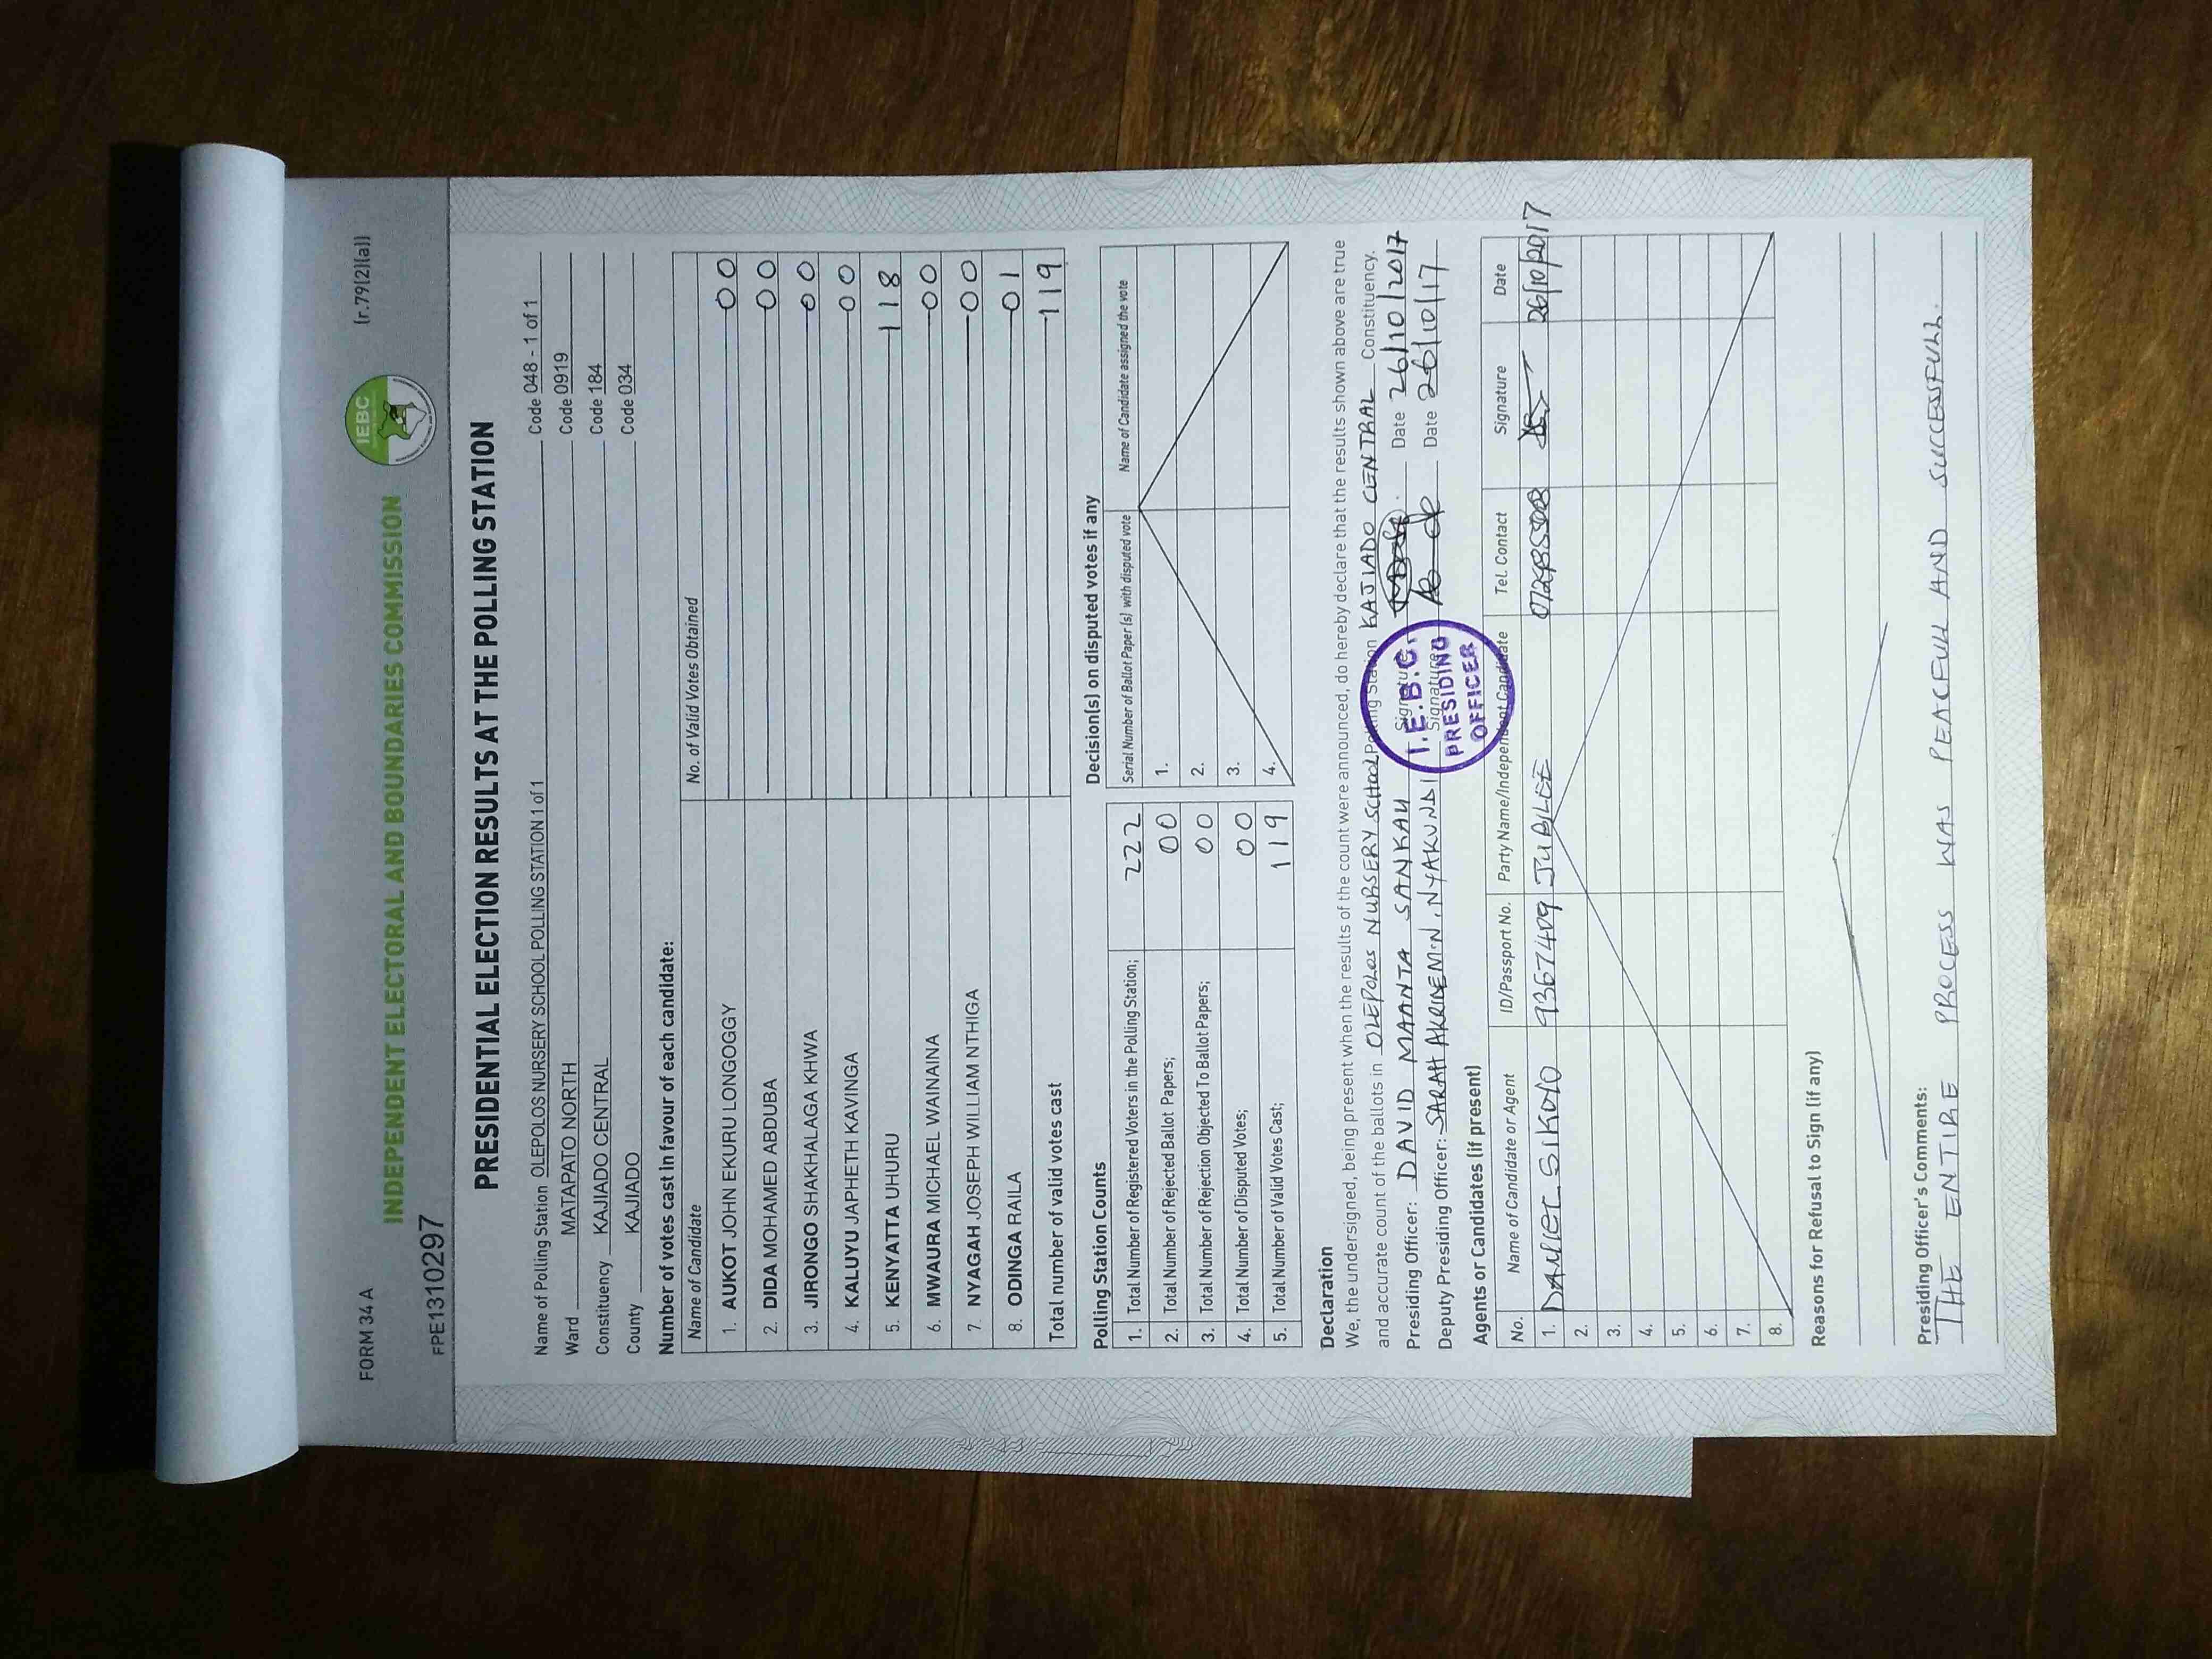 FORM 34 A
(r.79(2)(a))
IEBC
INDEPENDENT ELECTORAL AND BOUNDARIES COMMISSION
FPE1310297
PRESIDENTIAL ELECTION RESULTS AT THE POLLING STATION
Name of Polling Station OLEPOLOS NURSERY SCHOOL POLLING STATION 1 of 1 Code 048 - 1 of 1
Ward MATAPATO NORTH Code 0919
Constituency KAJIADO CENTRAL Code 184
County KAJIADO Code 034
Number of votes cast in favour of each candidate:
Name of Candidate No. of Valid Votes Obtained
1. AUKOT JOHN EKURU LONGOGGY 00
2. DIDA MOHAMED ABDUBA 00
3. JIRONGO SHAKHALAGA KHWA 00
4. KALUYU JAPHETH KAVINGA 00
5. KENYATTA UHURU 118
6. MWAURA MICHAEL WAINAINA 00
7. NYAGAH JOSEPH WILLIAM NTHIGA 00
8. ODINGA RAILA 01
Total number of valid votes cast 119
Polling Station Counts
1. Total Number of Registered Voters in the Polling Station; 222
2. Total Number of Rejected Ballot Papers; 00
3. Total Number of Rejection Objected To Ballot Papers; 00
4. Total Number of Disputed Votes; 00
5. Total Number of Valid Votes Cast; 119
Decision(s) on disputed votes if any
Serial Number of Ballot Paper (s) with disputed vote Name of Candidate assigned the vote
1.
2.
3.
4.
Declaration
We, the undersigned, being present when the results of the count were announced, do hereby declare that the results shown above are true
and accurate count of the ballots in OLEPOLOS NURSERY SCHOOL Polling Station KAJIADO CENTRAL Constituency.
Presiding Officer: DAVID MAANTA SANKAU Signature Date 26/10/2017
Deputy Presiding Officer: SARAH N. NYAKUNDI Signature Date 26/10/17
I.E.B.C.
PRESIDING
OFFICER
Agents or Candidates (if present)
No. Name of Candidate or Agent ID/Passport No. Party Name/Independent Candidate Tel. Contact Signature Date
1. DANIEL SIKOYO 9367409 JUBILEE 26/10/2017
2.
3.
4.
5.
6.
7.
8.
Reasons for Refusal to Sign (if any)
Presiding Officer's Comments:
THE ENTIRE PROCESS WAS PEACEFULL AND SUCCESSFULL.